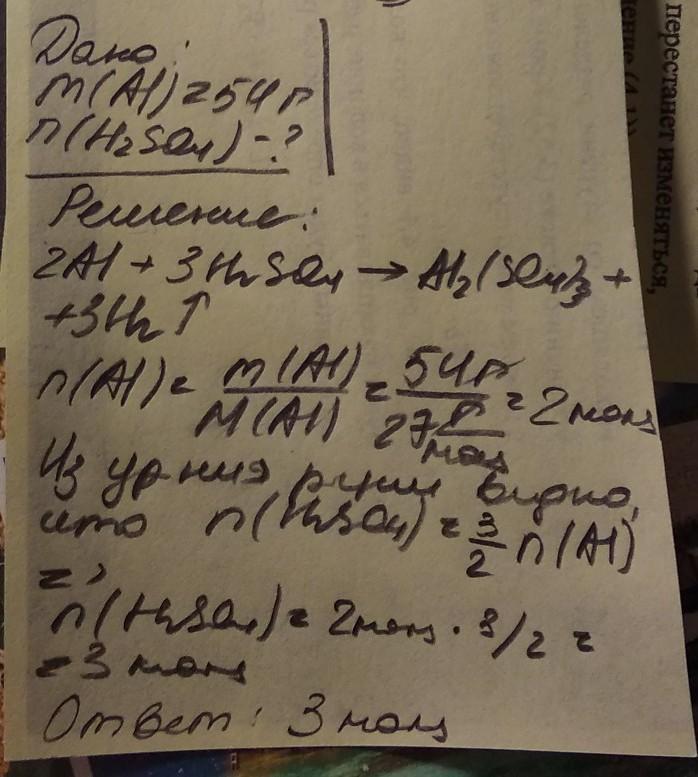 Дано:
m(Al)=54 г
n(H₂SO₄)-?
Решение:
2Al + 3H₂SO₄ → Al₂(SO₄)₃ +
+3H₂↑
n(Al) = m(Al)/M(Al) = 54г/27 г/моль = 2 моль
Из ур-ния р-ции видно,
что n(H₂SO₄) = 3/2 n(Al)
=>
n(H₂SO₄) = 2 моль · 3/2 =
= 3 моль
Ответ: 3 моль
перестанет изменяться,